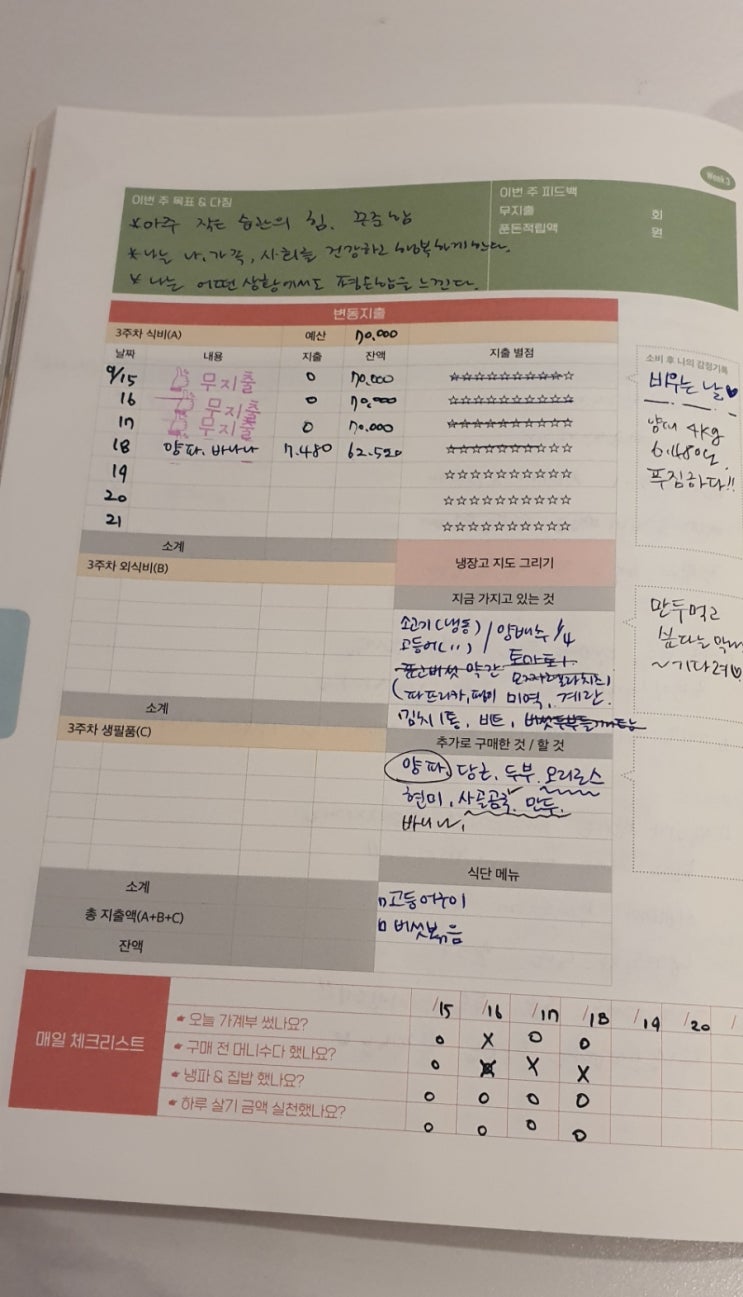 Week 3
이번 주 목표 & 다짐
*아주 작은 습관의 힘. 꾸준함
*나는 나, 가족, 사회를 건강하고 행복하게한다.
* 나는 어떤 상황에서도 평온함을 느낀다.
이번 주 피드백
무지출 회
푼돈적립액 원
변동지출
3주차 식비(A) 예산 70.000
날짜 내용 지출 잔액 지출 별점
9/15 무지출 0 70.000 ☆☆☆☆☆☆☆☆☆☆
16 무지출 0 70.000 ☆☆☆☆☆☆☆☆☆☆
17 무지출 0 70.000 ☆☆☆☆☆☆☆☆☆☆
18 양파. 바나나 7.480 62.520 ☆☆☆☆☆☆☆☆☆☆
19 ☆☆☆☆☆☆☆☆☆☆
20 ☆☆☆☆☆☆☆☆☆☆
21 ☆☆☆☆☆☆☆☆☆☆
소계
소비 후 나의 감정기록
비우는 날♥
4kg
푸짐하다!!
3주차 외식비(B)
소계
3주차 생필품(C)
소계
총 지출액(A+B+C)
잔액
냉장고 지도 그리기
지금 가지고 있는 것
소고기(냉동) / 양배추 1/4
고등어( 〃 )
약간 토마토1.
모짜렐라치즈1
(파프리카, 미역, 계란.
김치1통, 비트,
만두먹고
~기다려♡
추가로 구매한 것 / 할 것
양파. 당근. 두부. 오리로스
현미, 사골곰국. 만두.
바나나.
식단 메뉴
고등어구이
버섯볶음
매일 체크리스트
/15 /16 /17 /18 /19 /20 /
오늘 가계부 썼나요? o X o o
구매 전 머니수다 했나요? o X X X
냉파 & 집밥 했나요? o o o o
하루 살기 금액 실천했나요? o o o o